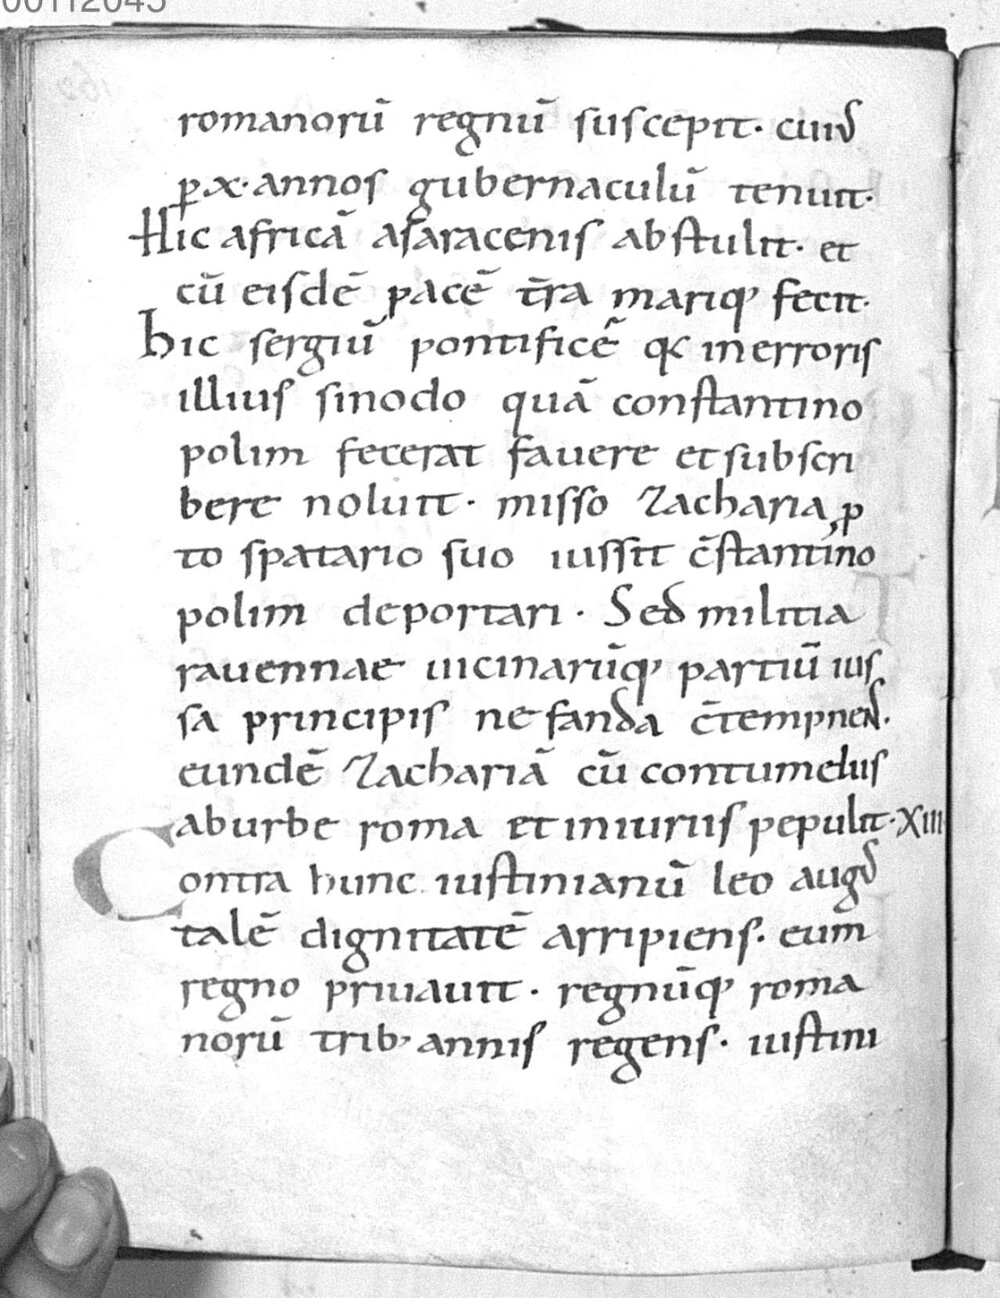 00112045
romanorū regnū suscepit· cuius
p̱ x· annos gubernaculū tenuit·
Hic africā asaracenis abstulit· et
cū eisdē pacē t̄ra mariq; fecit·
hic sergiū pontificē q inerroris
illius sinodo quā constantino
polim fecerat fauere et subscri
bere noluit· misso Zacharia, p
to spatario suo iussit c̄stantino
polim deportari· Sed militia
rauennae uicinarūq; partiū ius
sa principis nefanda c̄tempnens·
eundē Zachariā cū contumeliis
aburbe roma et iniuriis pepulit· XIII
Contra hunc iustinianū leo aug
talē dignitatē arripiens· eum
regno priuauit· regnūq; roma
norū trib; annis regens· iustini